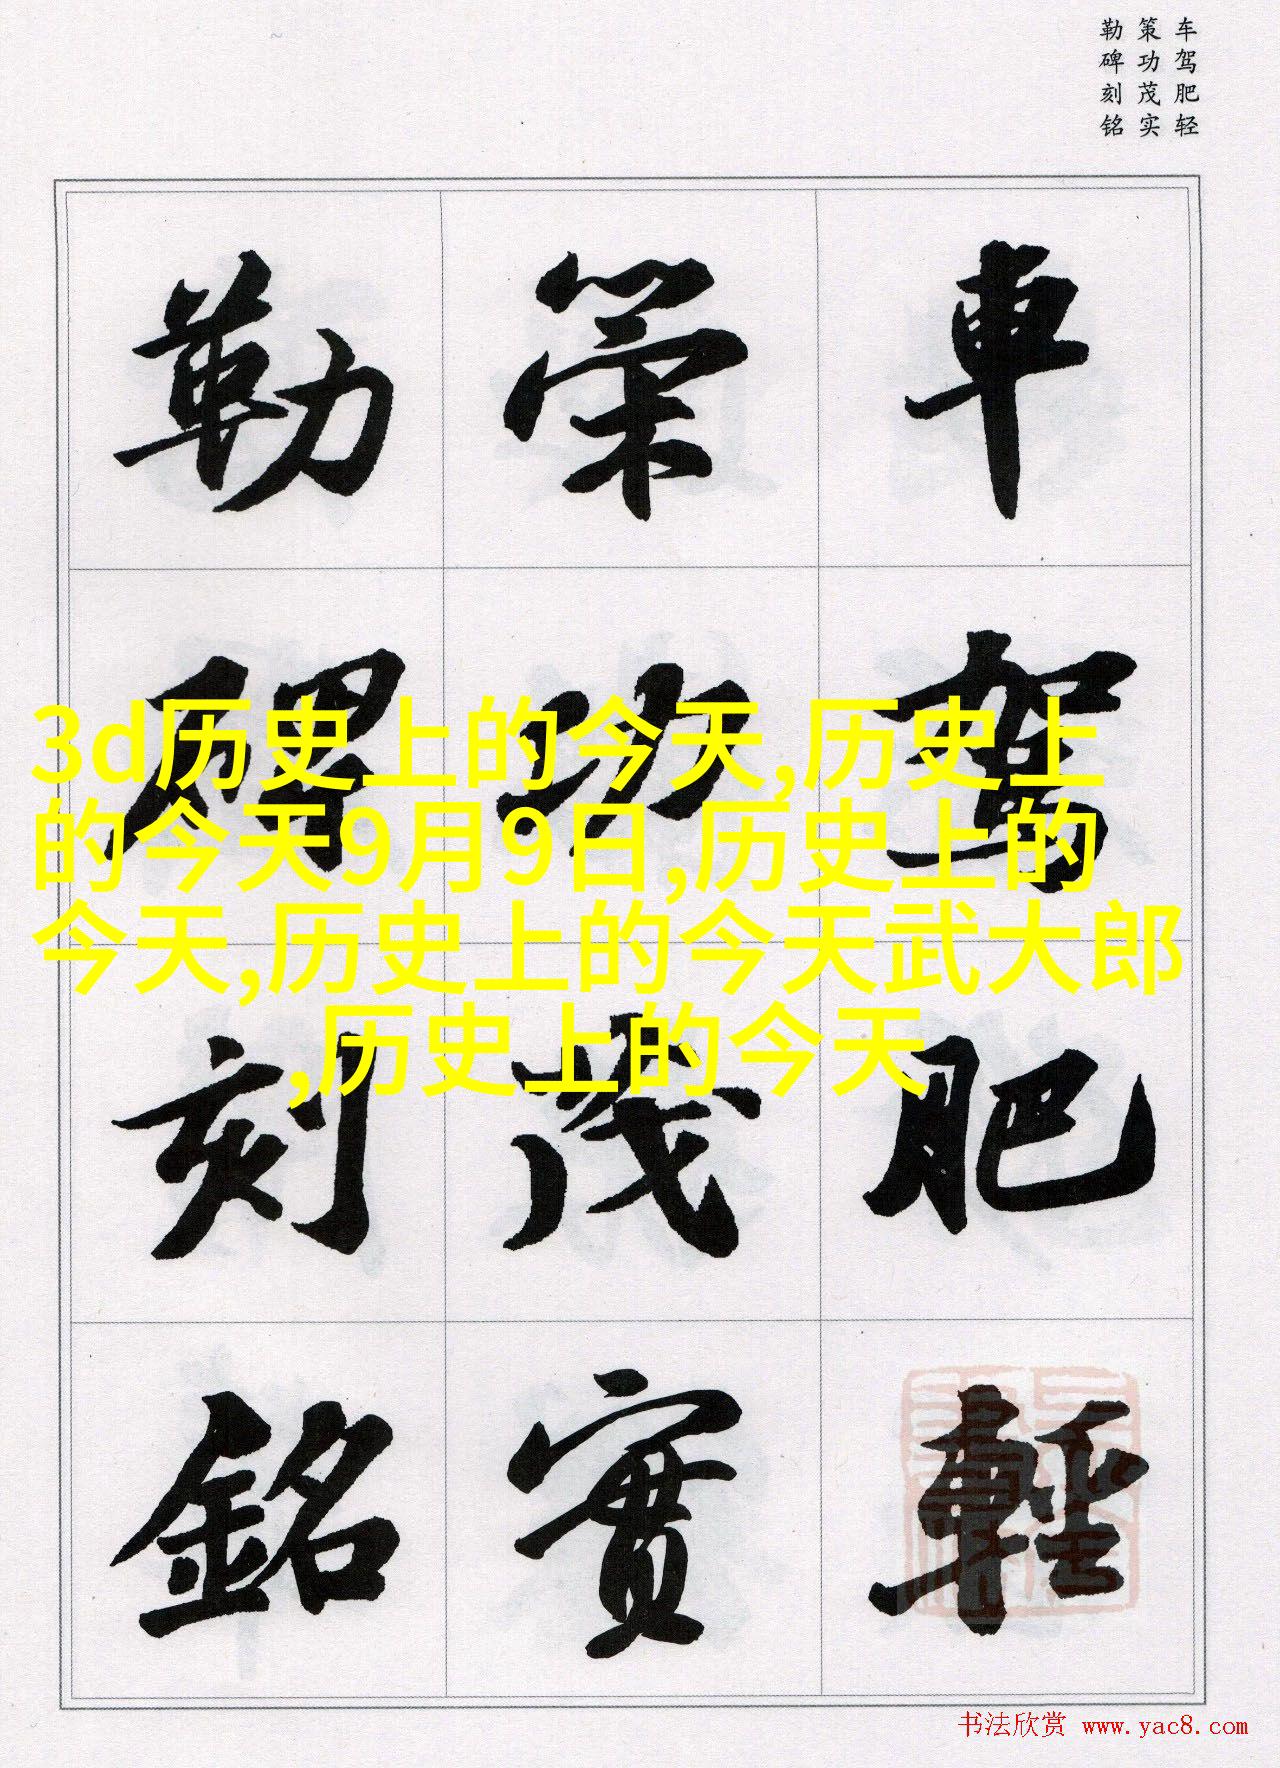 车驾肥轻
策功茂实
勒碑刻铭
車駕肥輕
策功茂實
勒碑刻銘
3d历史上的今天,历史上
的今天9月9日,历史上的
今天,历史上的今天武大郎
,历史上的今天
书法欣赏 www.yac8.com